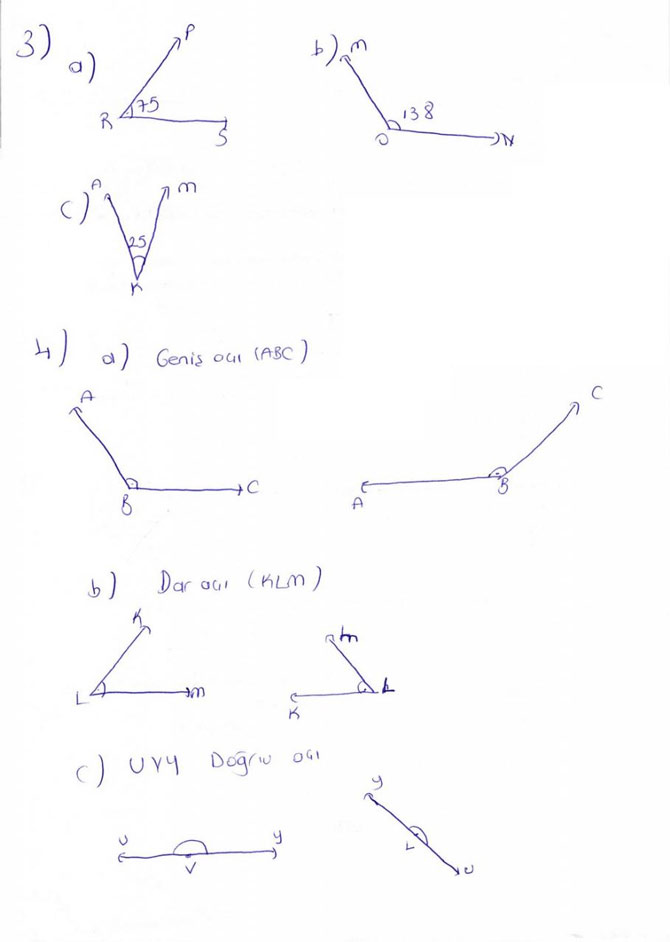 3) a) P
R 75 S
b) m
138
O N
c) A m
25
K
4) a) Geniş açı (ABC)
A
B C
C
A B
b) Dar açı (KLM)
K
L m
m
K L
c) UVY Doğru açı
U V y
y
L
U